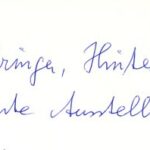 ringer, Hinte
te Ausstell